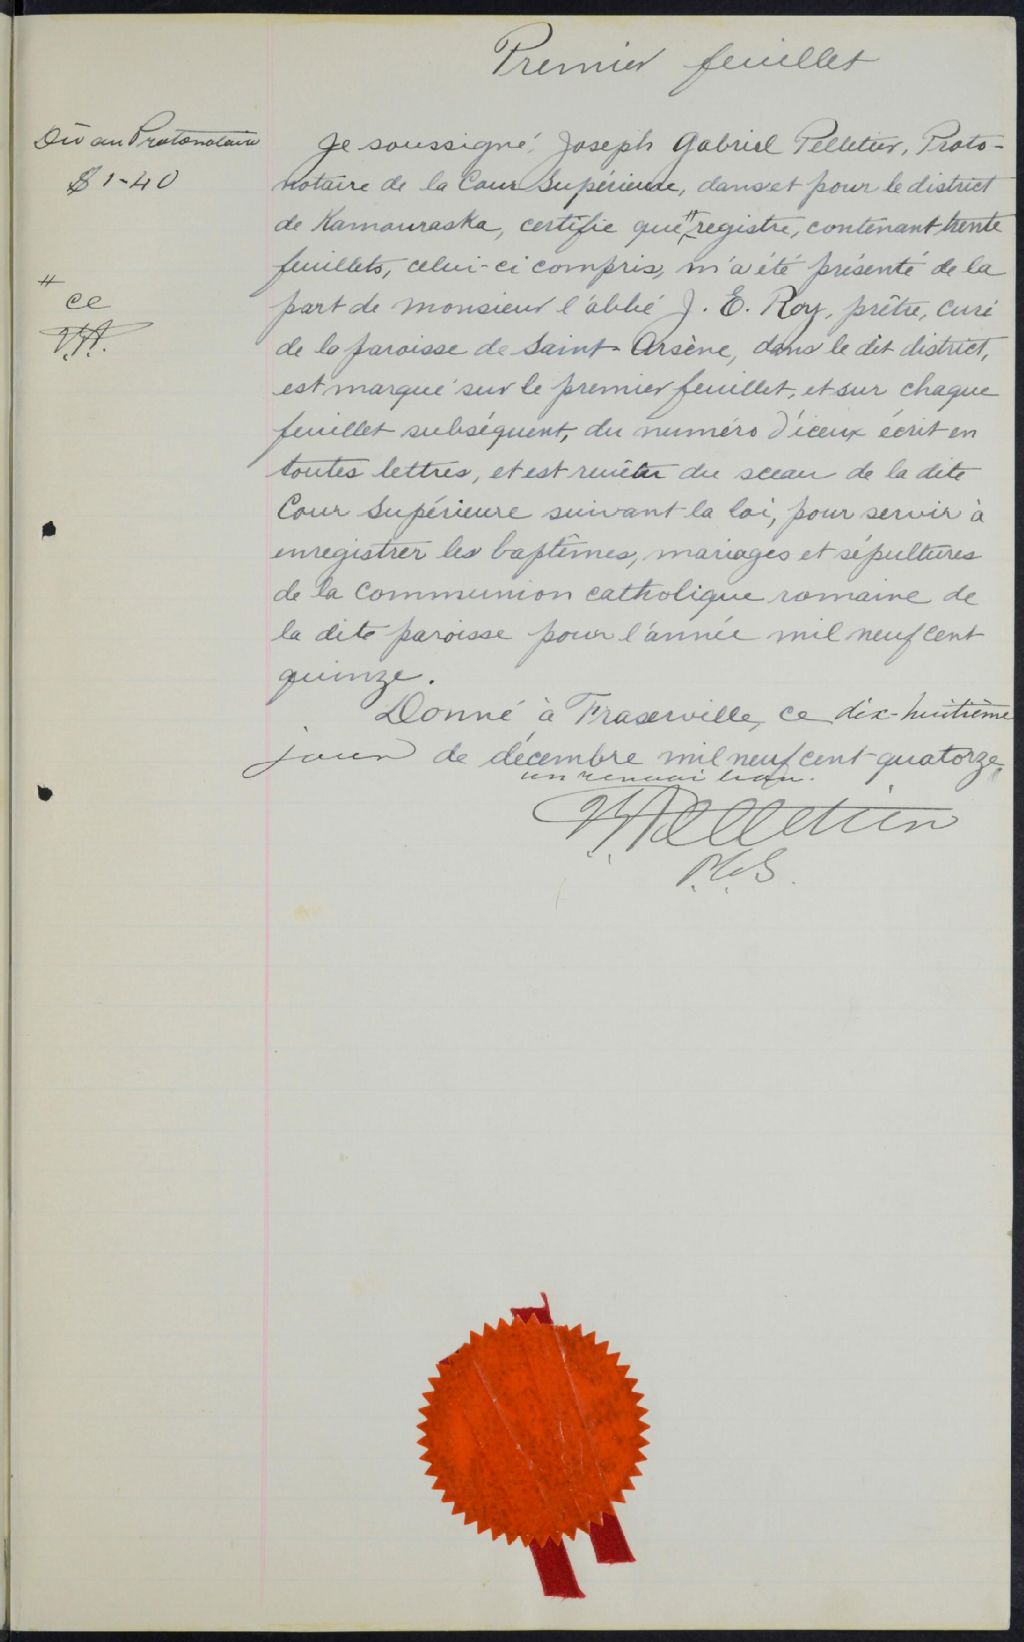 Premier feuillet
Dû au Protonotaire
$1-40
Je soussigné, Joseph Gabriel Pelletier, Proto-
notaire de la Cour Supérieure, dans et pour le district
de Kamouraska, certifie que # registre, contenant trente
feuillets, celui-ci compris, m'a été présenté de la
#
ce
part de monsieur l'abbé J. E. Roy, prêtre, curé
de la paroisse de Saint-Arsène, dans le dit district,
est marqué sur le premier feuillet, et sur chaque
feuillet subséquent, du numéro d'iceux écrit en
toutes lettres, et est revêtu du sceau de la dite
Cour Supérieure suivant la loi, pour servir à
enregistrer les baptêmes, mariages et sépultures
de la Communion catholique romaine de
la dite paroisse pour l'année mil neuf cent
quinze.
Donné à Fraserville, ce dix-huitième
jour de décembre mil neuf cent quatorze,
un renvoi bon.
Pelletier
P.C.S.